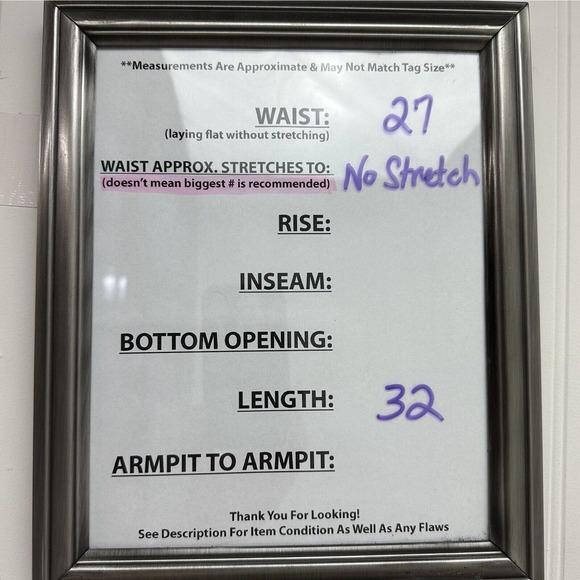 **Measurements Are Approximate & May Not Match Tag Size**
WAIST: 27
(laying flat without stretching)
WAIST APPROX. STRETCHES TO: No Stretch
(doesn't mean biggest # is recommended)
RISE:
INSEAM:
BOTTOM OPENING:
LENGTH: 32
ARMPIT TO ARMPIT:
Thank You For Looking!
See Description For Item Condition As Well As Any Flaws